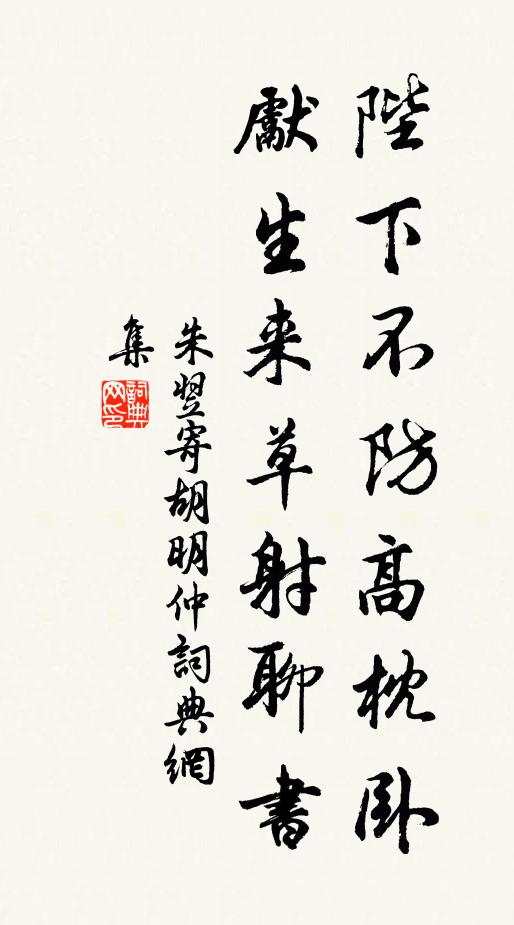 陛下不防高枕卧
獻生来草射聊書
朱翌寄胡明仲詞典網
集
詞典網印